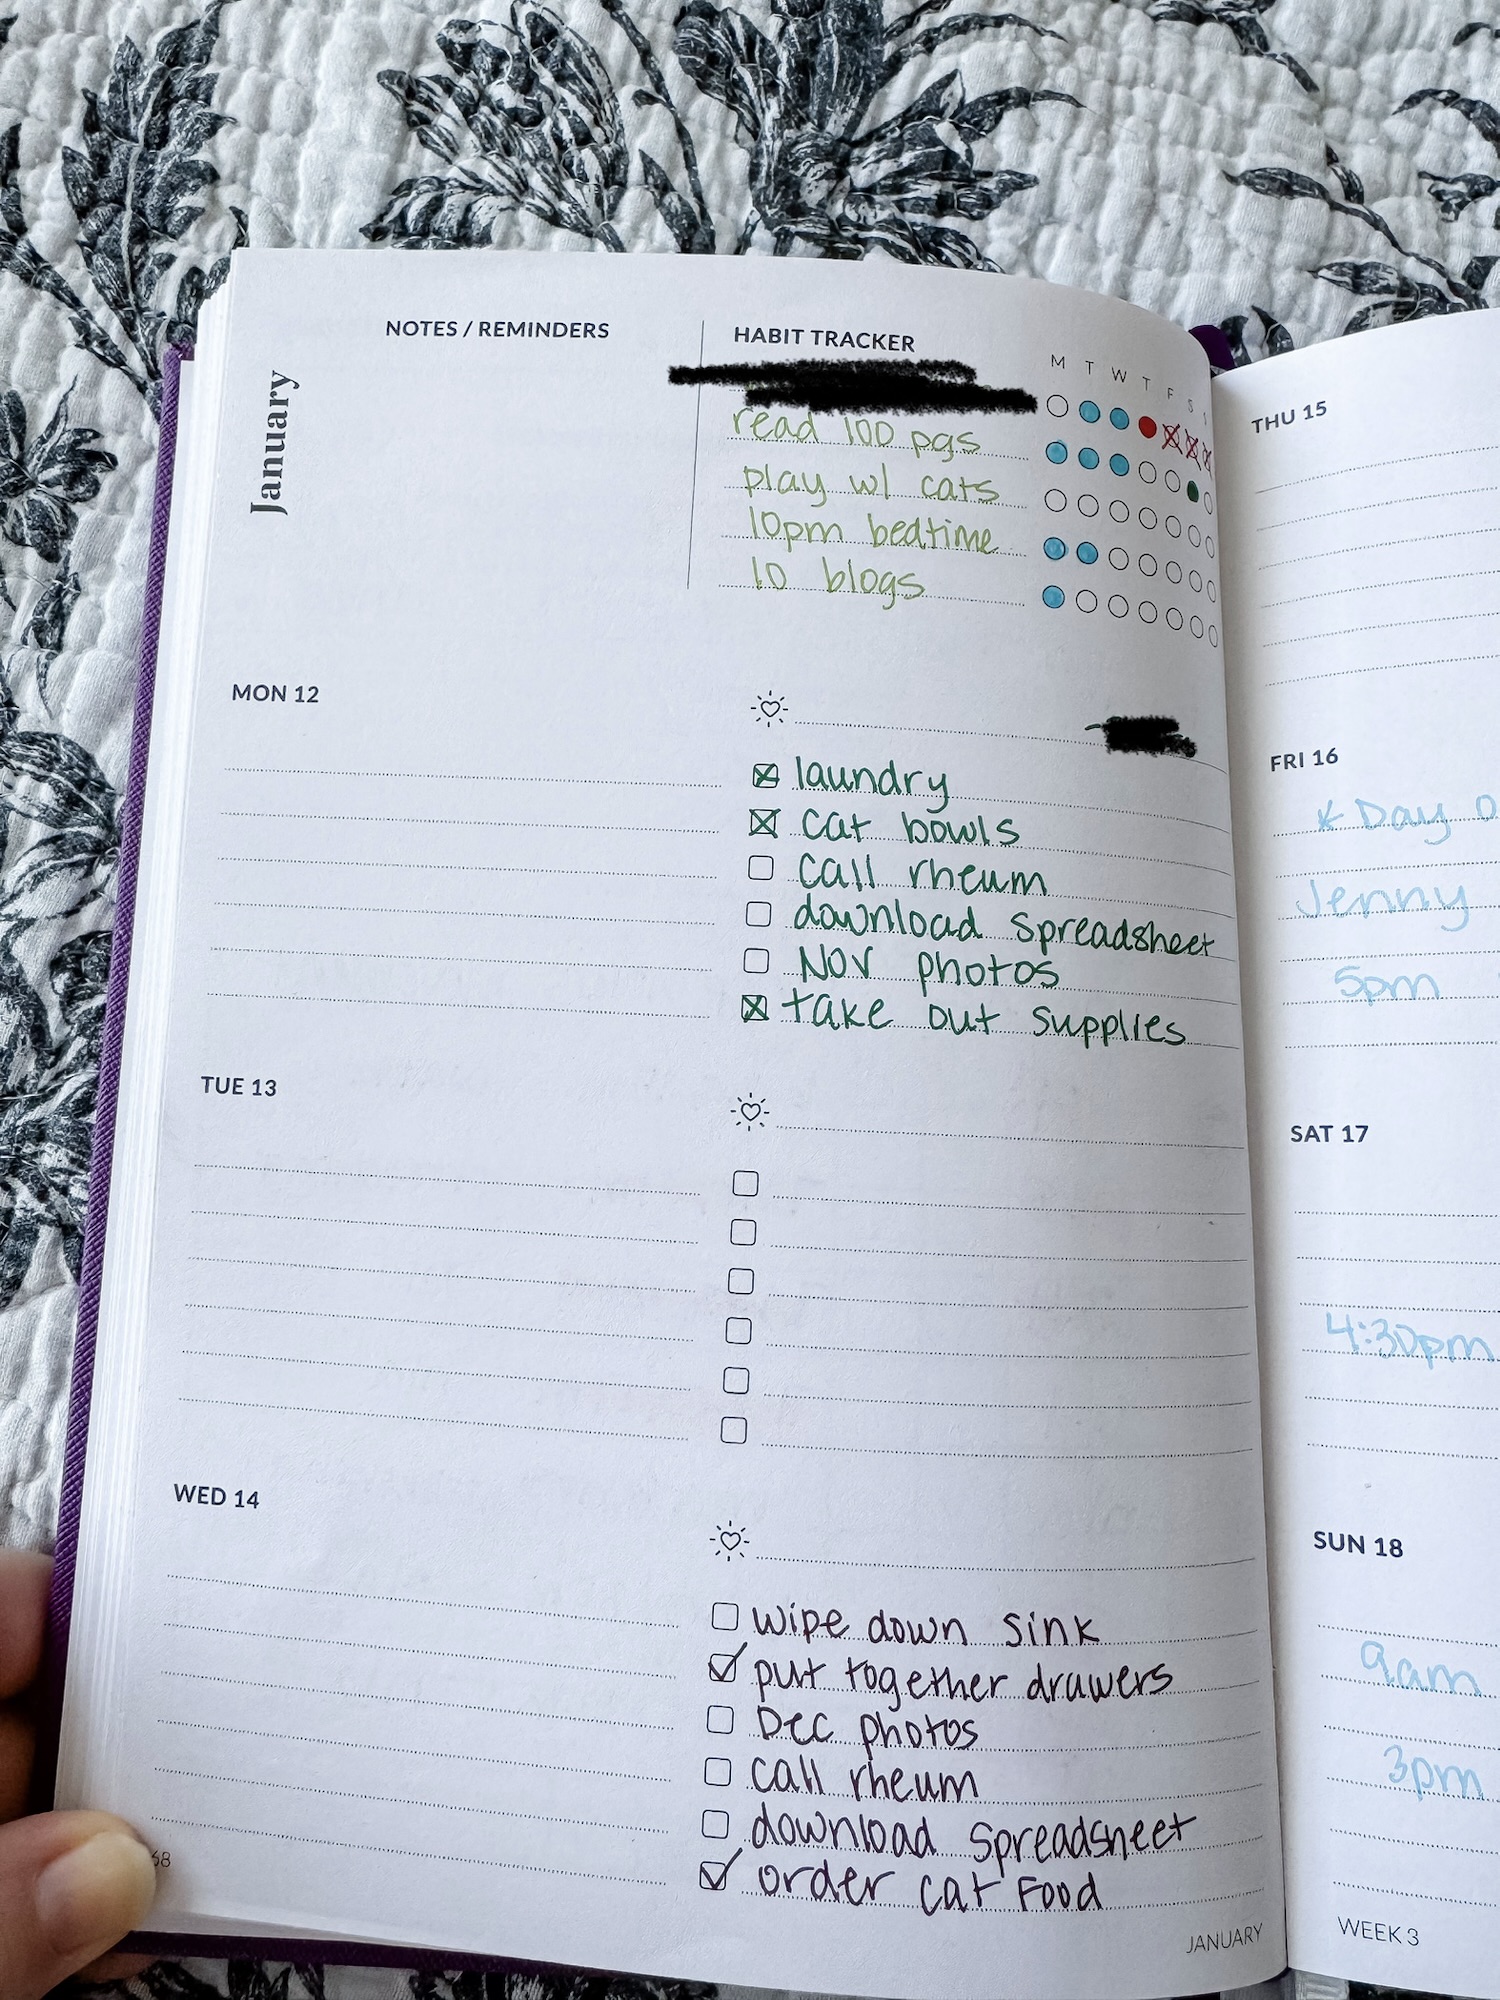 NOTES / REMINDERS
HABIT TRACKER
M T W T F S
January
read 100 pgs
play w/ cats
10pm bedtime
10 blogs
MON 12
laundry
cat bowls
call rheum
download spreadsheet
NOV photos
take out supplies
TUE 13
WED 14
wipe down sink
put together drawers
Dec photos
call rheum
download spreadsheet
order cat food
68
JANUARY
THU 15
FRI 16
* Day
Jenny
5pm
SAT 17
4:30pm
SUN 18
9am
3pm
WEEK 3